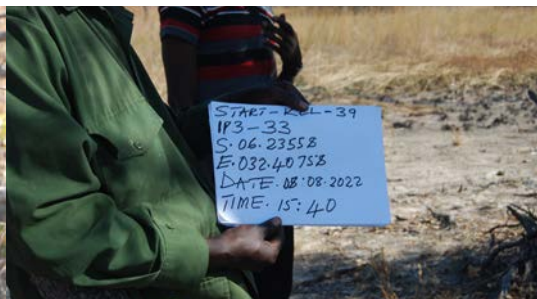 START-KEL-39
IP3-33
S.06.23558
E.032.40758
DATE.08.08.2022
TIME. 15:40